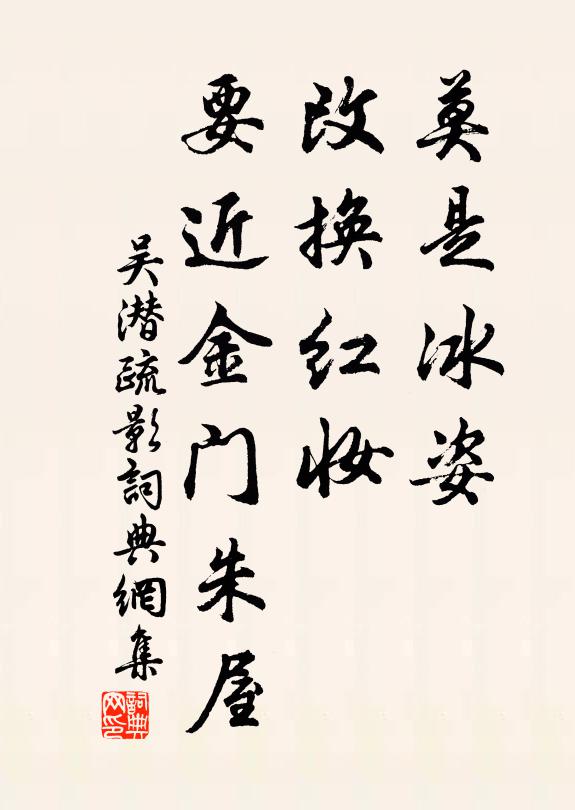 莫是冰姿
改换红妆
要近金门朱屋
吴潜疏影詞典網集
詞典网印